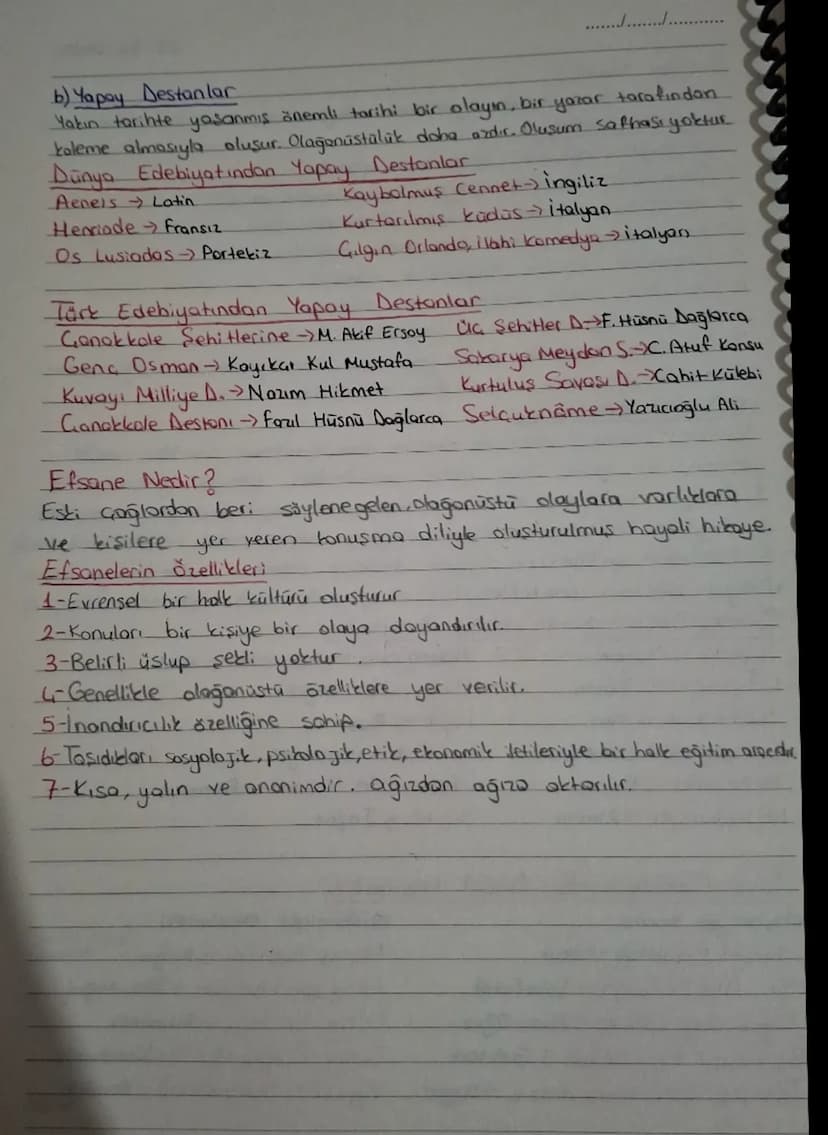 ....../......./...........
b) Yapay Destanlar
Yakın tarihte yaşanmış önemli tarihi bir olayın, bir yazar tarafından
kaleme almasıyla oluşur. Olağanüstülük daha azdır. Oluşum safhası yoktur
Dünya Edebiyatından Yapay Destanlar
Aeneis → Latin Kaybolmuş Cennet → İngiliz
Henriade → Fransız Kurtarılmış Kudüs → İtalyan
Os Lusiadas → Portekiz Çılgın Orlando, ilahi komedya → italyan
Türk Edebiyatından Yapay Destanlar
Çanakkale Şehitlerine → M. Akif Ersoy Üç Şehitler D. → F. Hüsnü Dağlarca
Genç Osman → Kayıkçı Kul Mustafa Sakarya Meydan S. → C. Atuf Kansu
Kuvayı Milliye D. → Nazım Hikmet Kurtuluş Savaşı D. → Cahit Külebi
Çanakkale Destanı → Fazıl Hüsnü Dağlarca Selçuknâme → Yazıcıoğlu Ali
Efsane Nedir?
Eski çağlardan beri söylenegelen, olağanüstü olaylara varlıklara
ve kişilere yer veren konuşma diliyle oluşturulmuş hayali hikaye.
Efsanelerin Özellikleri
1-Evrensel bir halk kültürü oluşturur
2-Konuları bir kişiye bir olaya dayandırılır.
3-Belirli üslup şekli yoktur.
4-Genellikle olağanüstü özelliklere yer verilir.
5-İnandırıcılık özelliğine sahip.
6-Taşıdıkları sosyolojik, psikolojik, etik, ekonomik iletileriyle bir halk eğitim aracıdır.
7-Kısa, yalın ve anonimdir. ağızdan ağıza aktarılır.